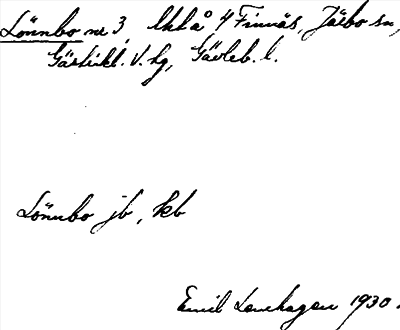 Lönnbo nr 3, Ukkå 4 Finnäs, Järbo sn,
Gästrikl. V. hg, Gävleb. l.
Lönnbo jb, kb
Emil Lenhagen 1930.